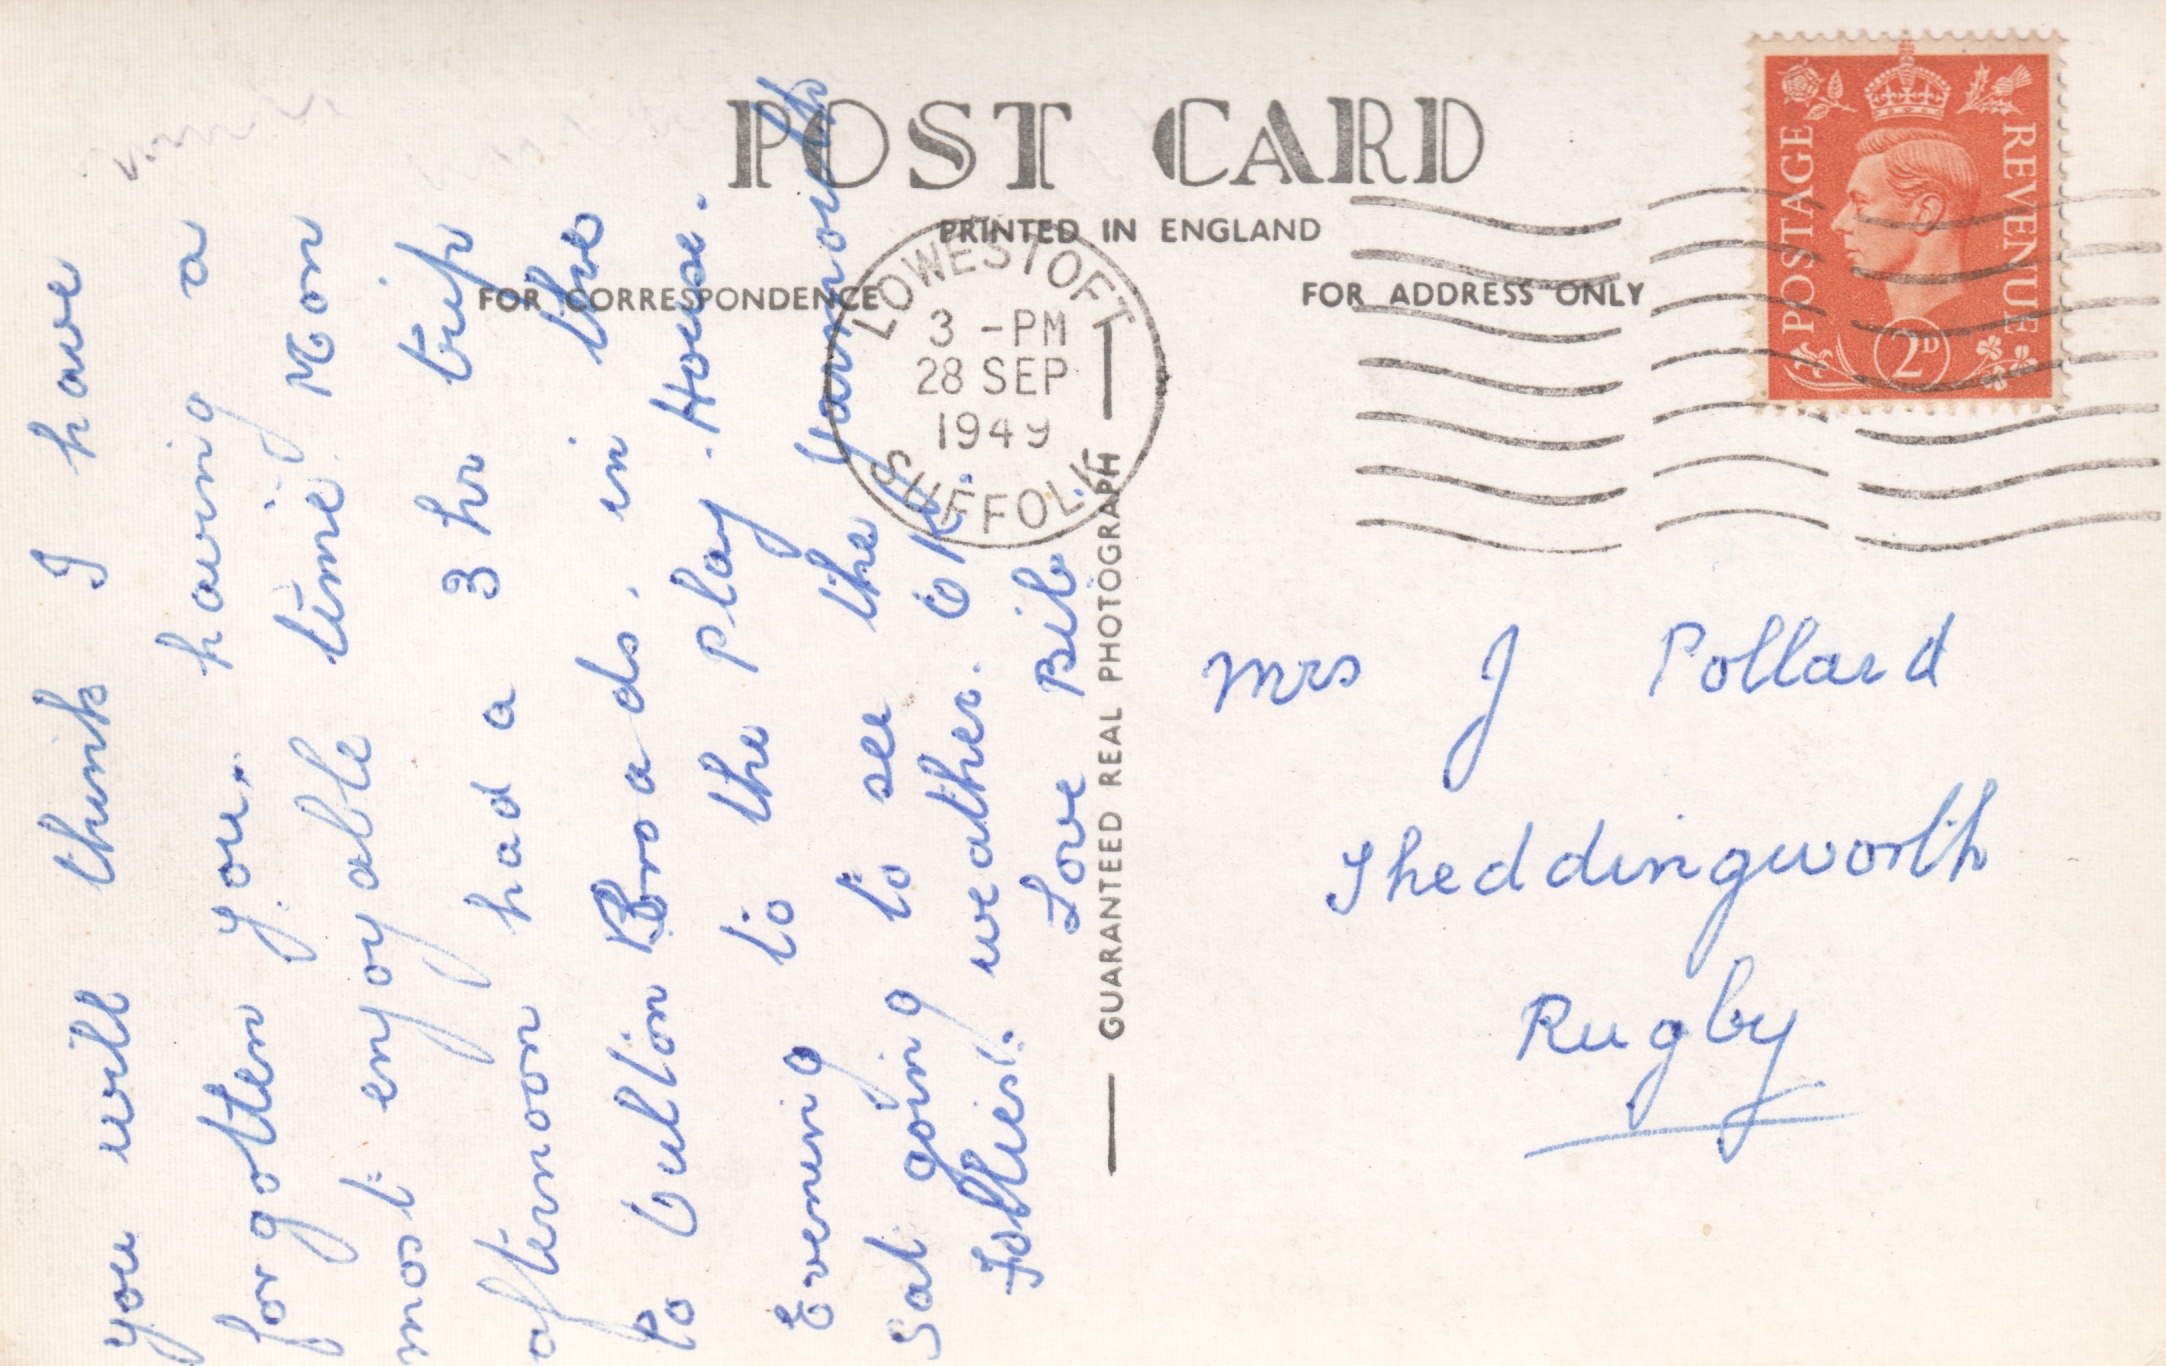 POST CARD
PRINTED IN ENGLAND
FOR CORRESPONDENCE
FOR ADDRESS ONLY
POSTAGE
REVENUE
2D
LOWESTOFT
3 - PM
28 SEP
1949
SUFFOLK
GUARANTEED REAL PHOTOGRAPH
you will think I have
forgotten you, having a
most enjoyable time. Mon
afternoon had a 3 hr trip
to Oulton Broads. in the
Evening to the play. House.
Sat going to see the Yarmouth
Follies. weather. OK.
Love Bib
Mrs J Pollard
Theddingworth
Rugby